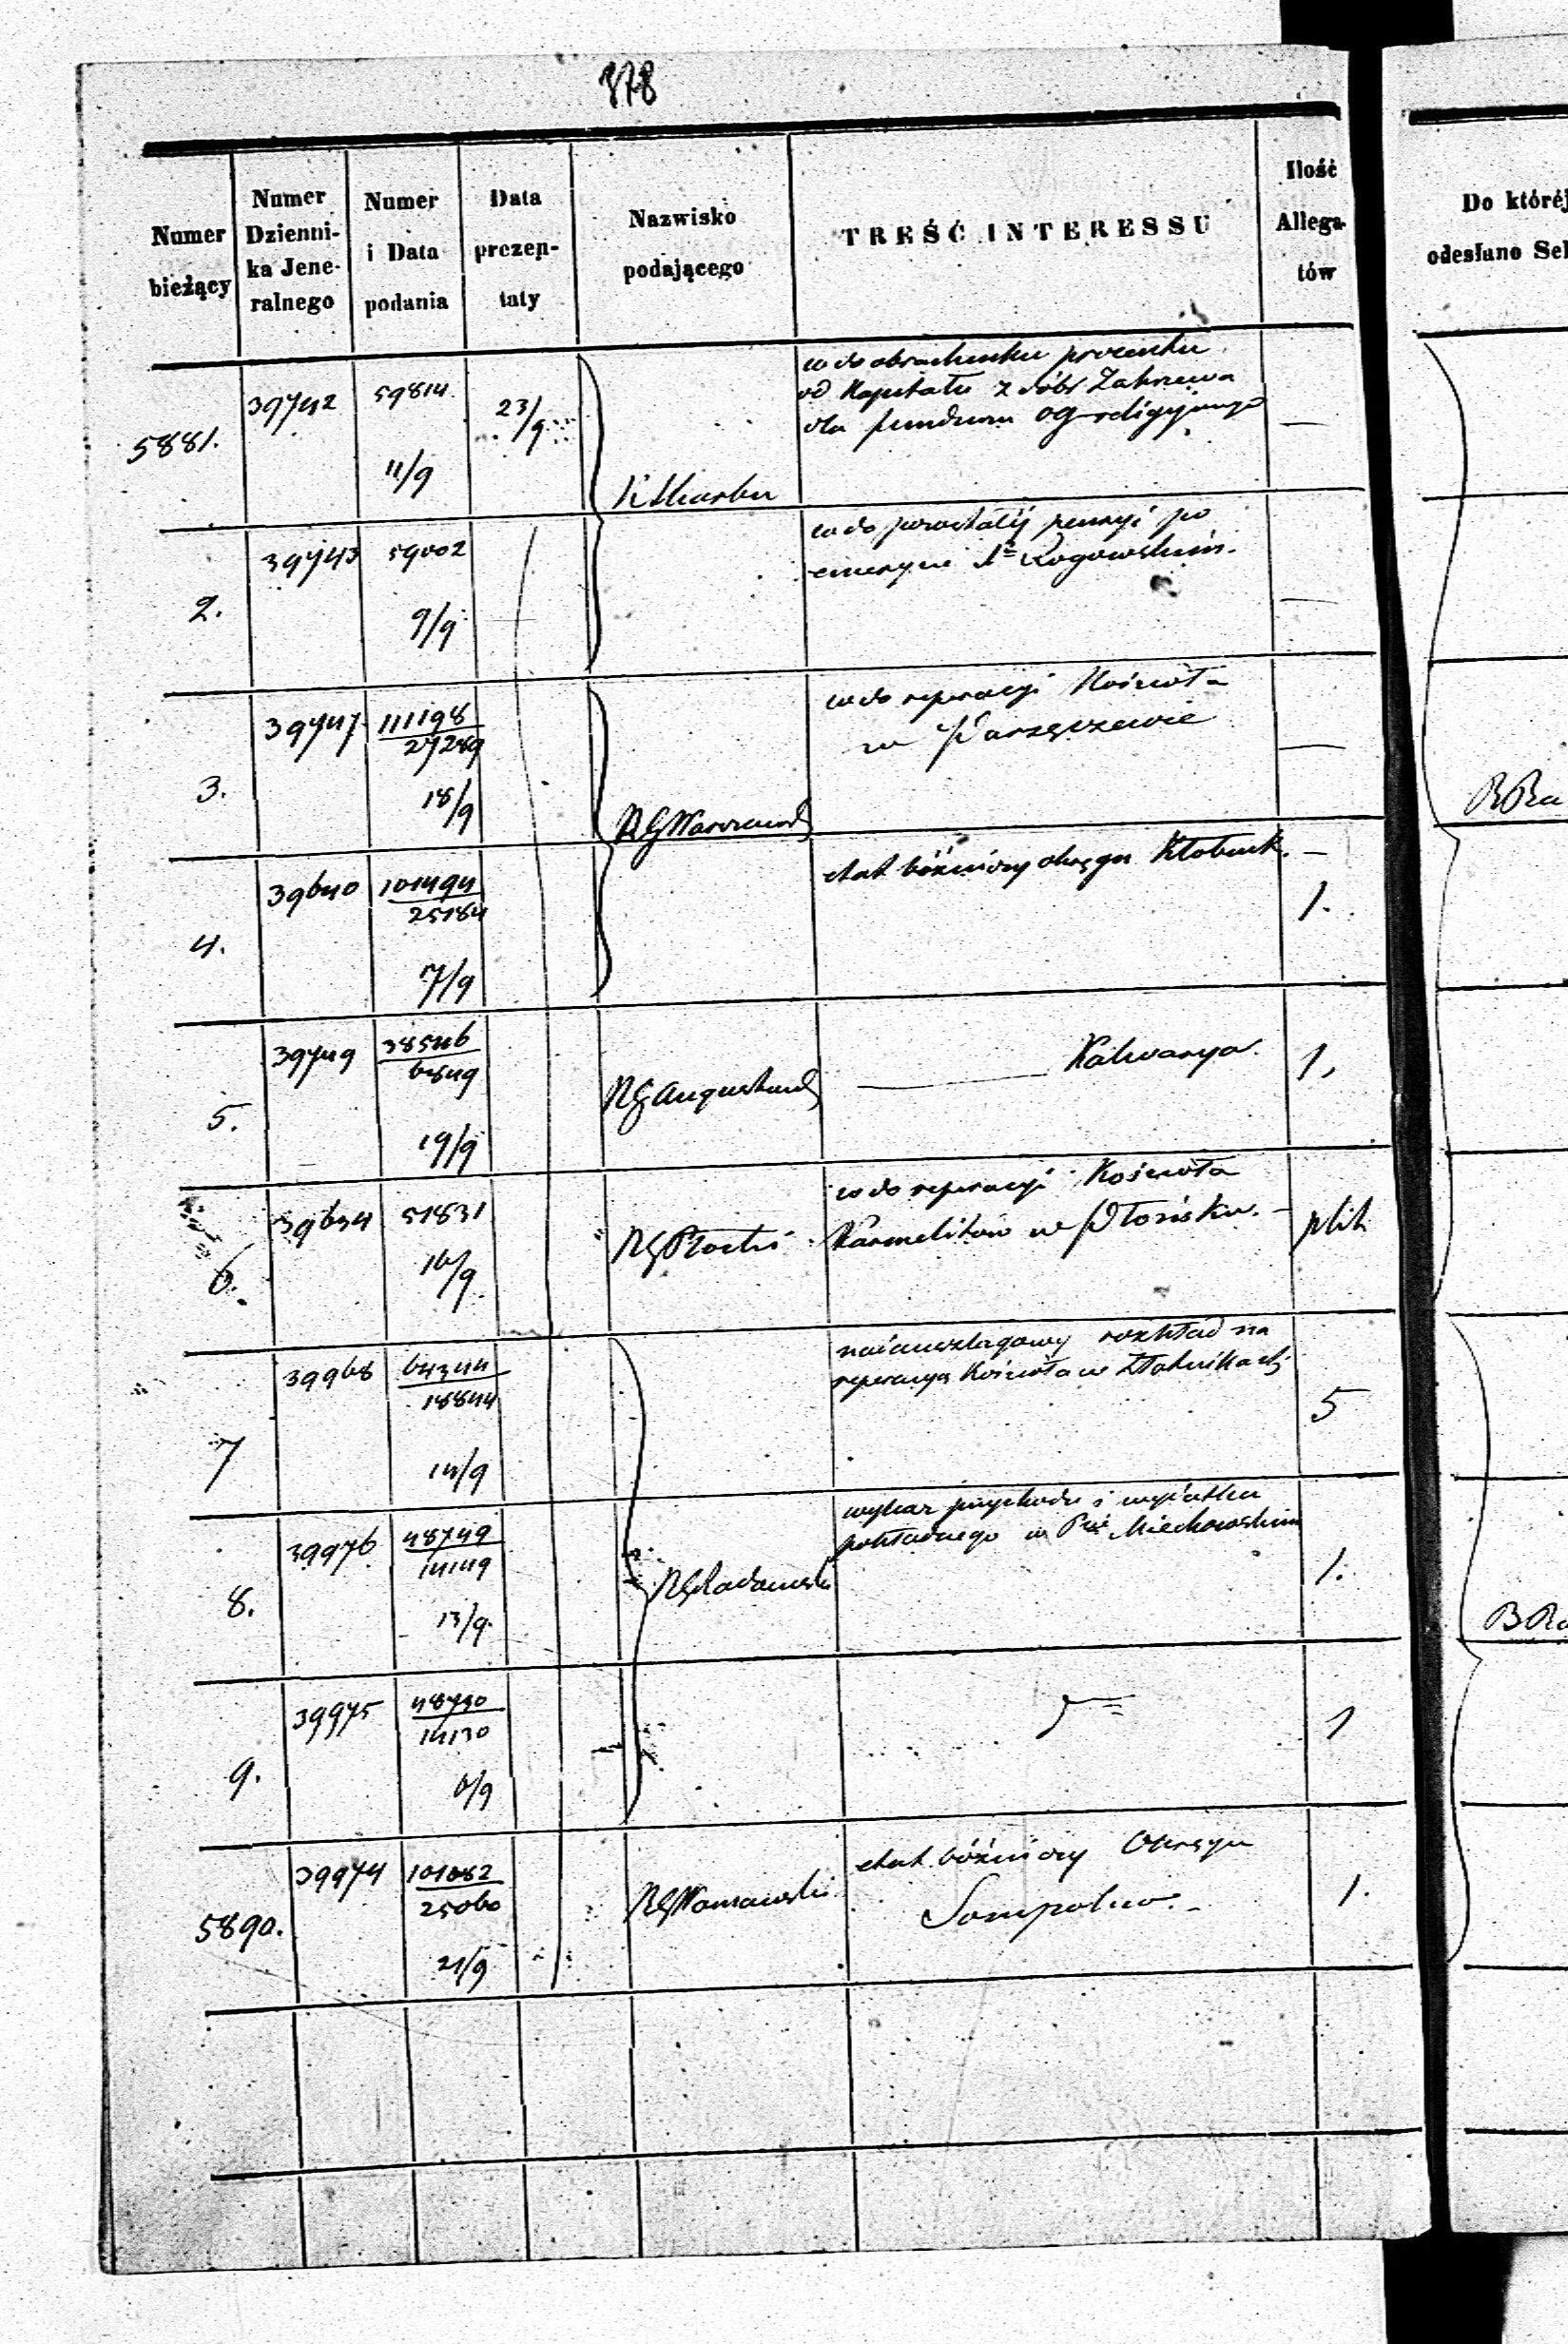 878
Numer bieżący
Numer Dzienni-
ka Jene-
ralnego
Numer i Data podania
Data prezen-
taty
Nazwisko podającego
TREŚĆ INTERESSU
Ilość Allega-
tów
Do któréj
odesłano Sek
5881.
39742
59814
11/9
23/9
K Skarbu
co do obrachunku procentu
od Kapitału z dóbr Zakrzewa
dla funduszu og religijnego
—
2.
39743
59002
9/9
co do pozostałéj pensyi po
emerycie Rogowskim.
—
3.
39747
111198
27289
18/9
RG Warszawsk
co do reperacyi Kościoła
w Parzęczewie
—
4.
39640
101494
25184
7/9
etat bóżniczy okręgu Kłobuck. —
1.
5.
39749
38546
6849
19/9
RG Augustowsk
——— Kalwarya.
1,
6.
39634
51831
16/9
RG Płocki
co do reperacyi Kościoła
Karmelitów w Płońsku. -
plik
7
39968
64344
18844
14/9
rozkład na
reperacyą Kościoła w Złotnikach
5
8.
39976
48749
14149
13/9
RG Radomski
wykaz przychodu i wydatku
pokładnego w Pcie Miechowskim
1.
9.
39975
48730
14130
6/9
1
5890.
39974
101082
25060
21/9
RG Warszawski
etat bóżniczy Okręgu
Sompolno. -
1.